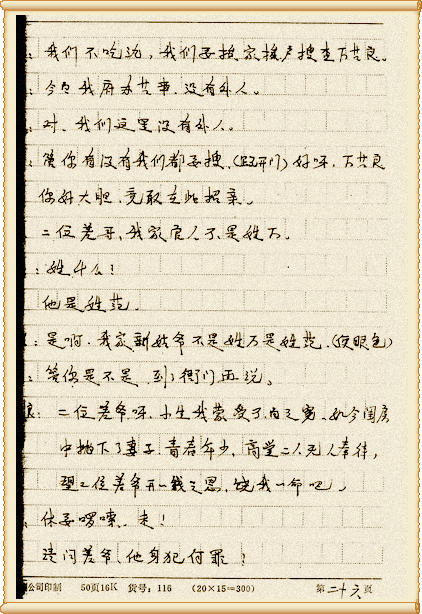 ：我们不吃酒，我们要挨家挨户搜查万共良。
：今日我府办共事，没有外人。
：对、我们这里没有外人。
：管你有没有我们都要搜、(踢开门) 好呀，万共良
你好大胆，竟敢在此招亲。
二位差哥、我家官人不是姓万。
：姓什么！
他是姓范。
：是啊、我家新姑爷不是姓万是姓范、(使眼色)
：管你是不是、到了衙门再说。
良：二位差爷呀、小生我蒙受了 之冤、如今闺房
中抛下了妻子、青春年少、高堂二人无人奉待，
望二位差爷开一线之恩、饶我一命吧，
：休要啰嗦、走！
请问差爷、他身犯何罪！
公司印制 50页16K 货号：116 (20×15=300) 第二十六页